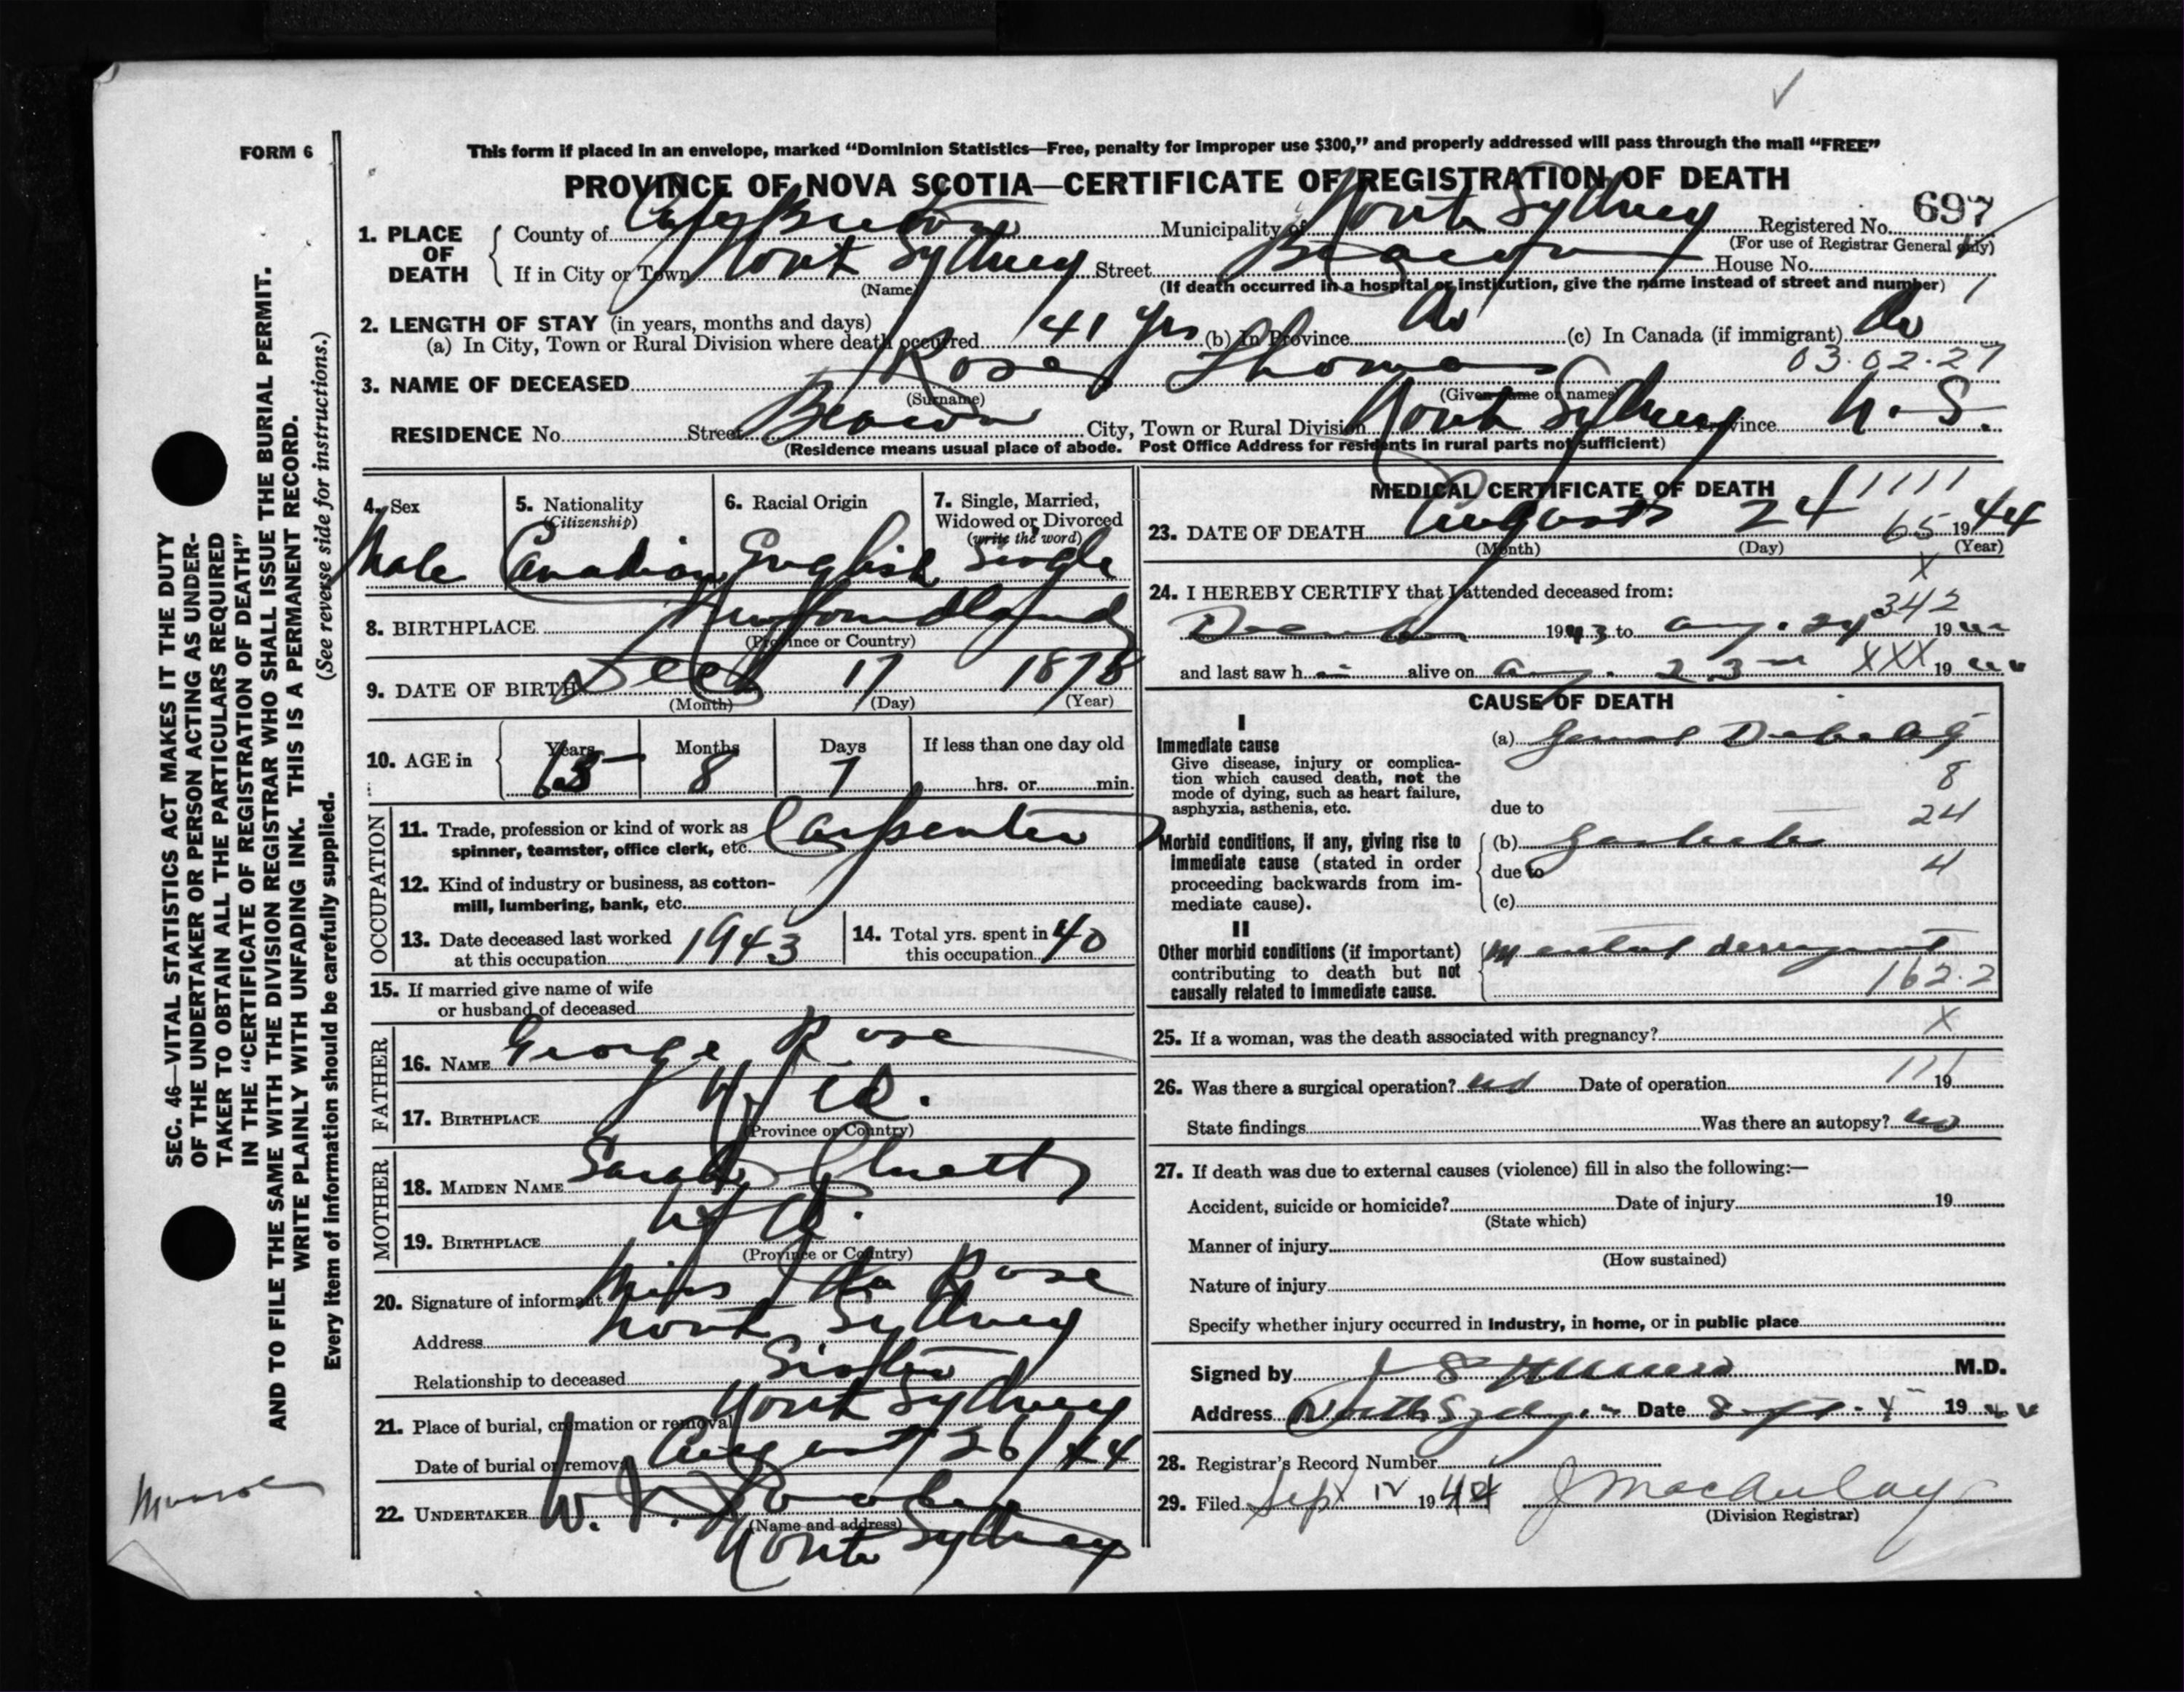 FORM 6
This form if placed in an envelope, marked “Dominion Statistics—Free, penalty for improper use $300,” and properly addressed will pass through the mail “FREE”
PROVINCE OF NOVA SCOTIA—CERTIFICATE OF REGISTRATION OF DEATH
697
1. PLACE OF DEATH { County of Cape Breton Municipality of North Sydney Registered No.
(For use of Registrar General only)
If in City or Town North Sydney Street Beacon House No.
(Name) (If death occurred in a hospital or institution, give the name instead of street and number) 1
2. LENGTH OF STAY (in years, months and days)
(a) In City, Town or Rural Division where death occurred 41 yrs (b) In Province Do (c) In Canada (if immigrant) Do
03.02.27
3. NAME OF DECEASED Rose Thomas
(Surname) (Given name of names)
RESIDENCE No. Street Beacon City, Town or Rural Division North Sydney Province N. S.
(Residence means usual place of abode. Post Office Address for residents in rural parts not sufficient)
4. Sex
Male
5. Nationality
(Citizenship)
Canadian
6. Racial Origin
English
7. Single, Married,
Widowed or Divorced
(write the word)
Single
8. BIRTHPLACE Newfoundland
(Province or Country)
9. DATE OF BIRTH Dec 17 1878
(Month) (Day) (Year)
10. AGE in Years Months Days If less than one day old
65 8 7 hrs. or min.
OCCUPATION
11. Trade, profession or kind of work as
spinner, teamster, office clerk, etc. Carpenter
12. Kind of industry or business, as cotton-
mill, lumbering, bank, etc.
13. Date deceased last worked
at this occupation 1943
14. Total yrs. spent in
this occupation 40
15. If married give name of wife
or husband of deceased
FATHER
16. NAME George Rose
17. BIRTHPLACE Nfld.
(Province or Country)
MOTHER
18. MAIDEN NAME Sarah
19. BIRTHPLACE Nfld.
(Province or Country)
20. Signature of informant Miss Rose
Address North Sydney
Relationship to deceased Sister
21. Place of burial, cremation or removal North Sydney
Date of burial or removal August 26/44
22. UNDERTAKER W. J.
(Name and address)
North Sydney
MEDICAL CERTIFICATE OF DEATH
1111
23. DATE OF DEATH August 24 65 1944
(Month) (Day) (Year)
X
24. I HEREBY CERTIFY that I attended deceased from:
342
December 1943 to Aug. 24 1944
and last saw him alive on Aug. 23rd XXX 1944
CAUSE OF DEATH
I
Immediate cause
Give disease, injury or complica-
tion which caused death, not the
mode of dying, such as heart failure,
asphyxia, asthenia, etc.
(a) General Debility
8
due to
24
Morbid conditions, if any, giving rise to
immediate cause (stated in order
proceeding backwards from im-
mediate cause).
(b)
due to 4
(c)
II
Other morbid conditions (if important)
contributing to death but not
causally related to immediate cause.
Mental derangement
162.2
25. If a woman, was the death associated with pregnancy? X
26. Was there a surgical operation? no Date of operation 111 19
State findings Was there an autopsy? no
27. If death was due to external causes (violence) fill in also the following:—
Accident, suicide or homicide? Date of injury 19
(State which)
Manner of injury
(How sustained)
Nature of injury
Specify whether injury occurred in industry, in home, or in public place
Signed by J S Munro M.D.
Address North Sydney Date Sept. 1944
28. Registrar's Record Number
29. Filed Sept 12 1944 J MacAulay
(Division Registrar)
SEC. 46—VITAL STATISTICS ACT MAKES IT THE DUTY
OF THE UNDERTAKER OR PERSON ACTING AS UNDER-
TAKER TO OBTAIN ALL THE PARTICULARS REQUIRED
IN THE “CERTIFICATE OF REGISTRATION OF DEATH”
AND TO FILE THE SAME WITH THE DIVISION REGISTRAR WHO SHALL ISSUE THE BURIAL PERMIT.
WRITE PLAINLY WITH UNFADING INK. THIS IS A PERMANENT RECORD.
Every item of information should be carefully supplied. (See reverse side for instructions.)
Munro